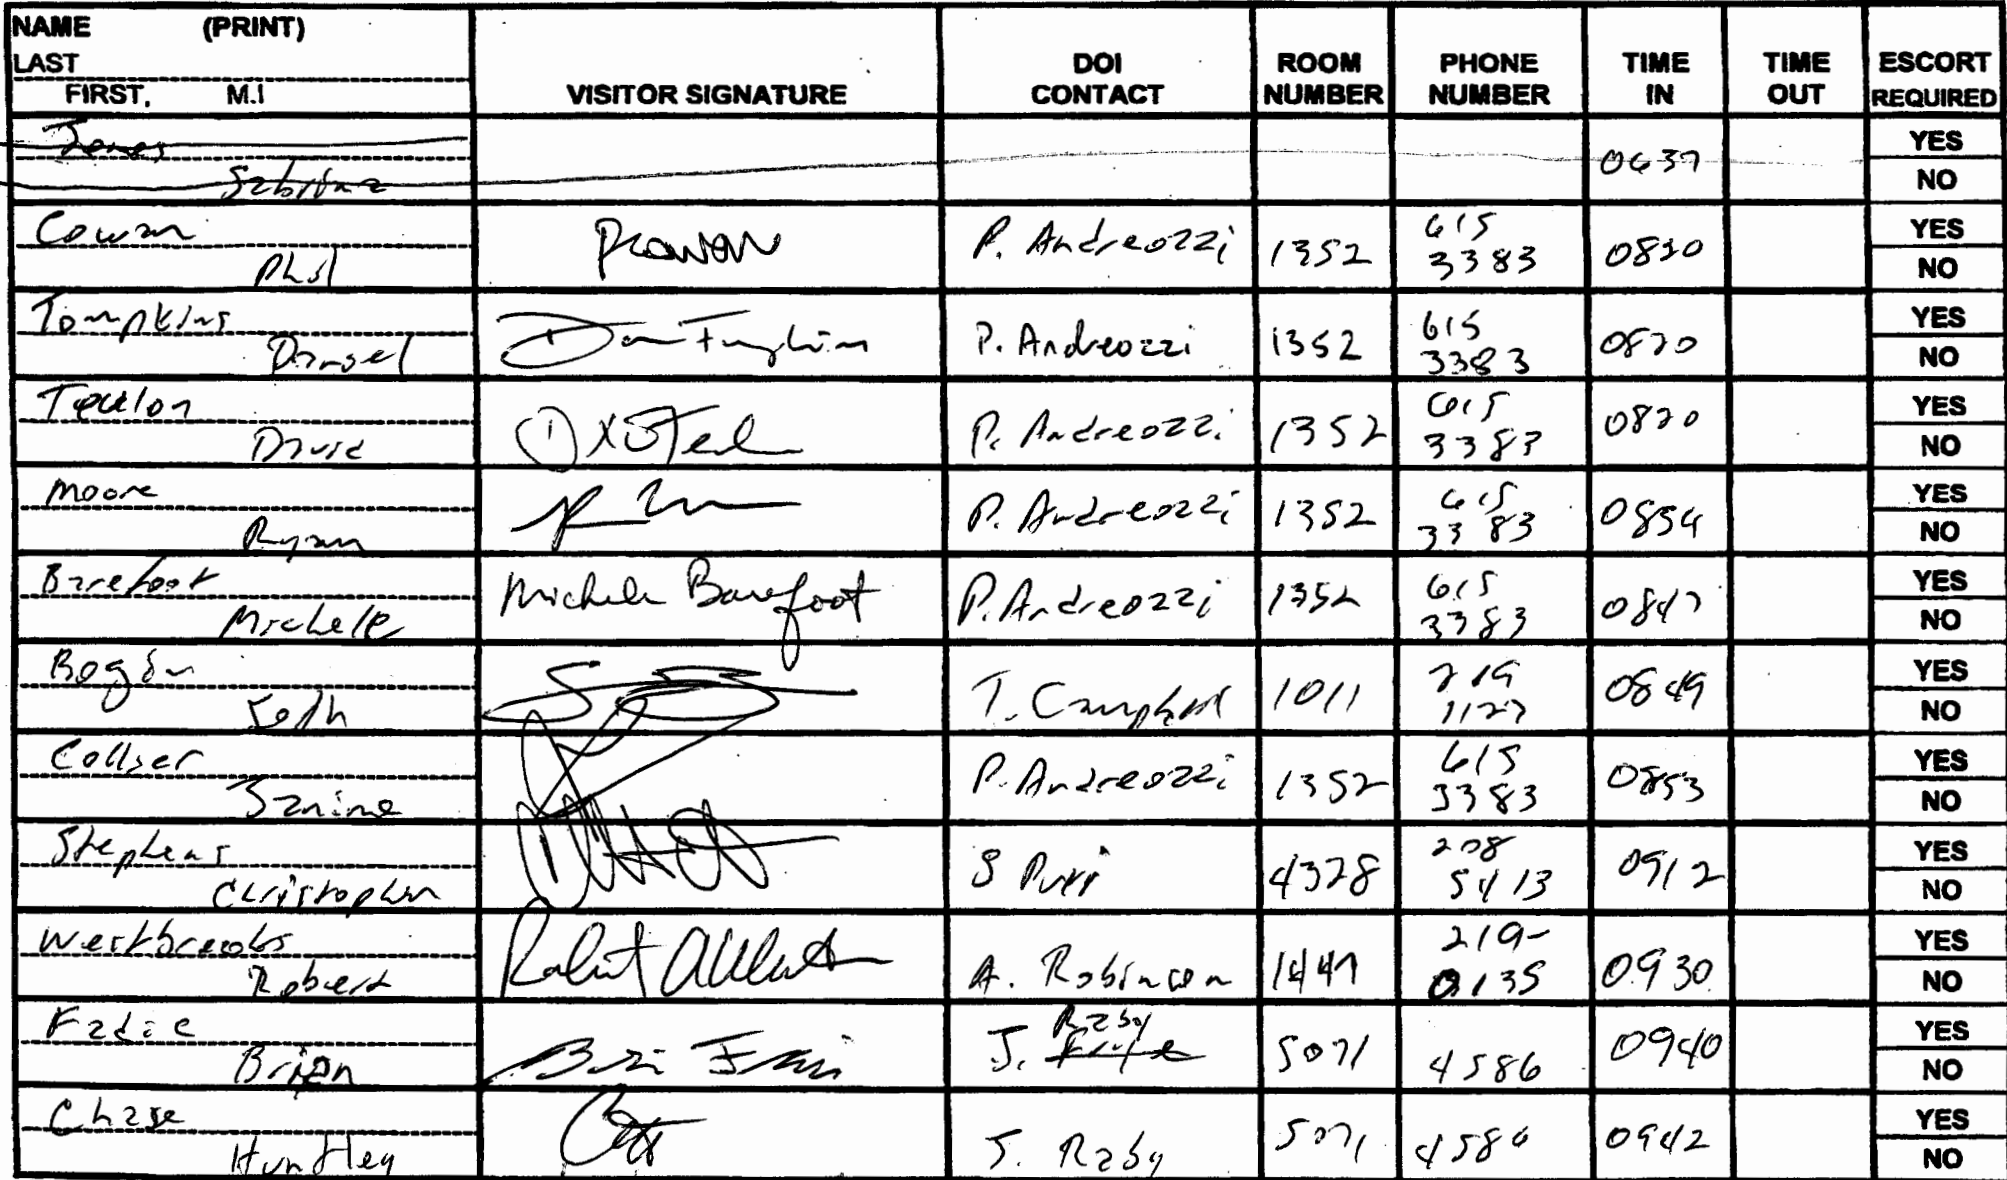 NAME (PRINT)
LAST
FIRST, M.I
VISITOR SIGNATURE
DOI
CONTACT
ROOM
NUMBER
PHONE
NUMBER
TIME
IN
TIME
OUT
ESCORT
REQUIRED
Jones
Sabrina
0637
YES
NO
Cowan
Phil
PCowan
P. Andreozzi
1352
615
3383
0820
YES
NO
Tompkins
Daniel
P. Andreozzi
1352
615
3383
0820
YES
NO
Teulon
David
P. Andreozzi
1352
615
3383
0820
YES
NO
Moore
Ryan
P. Andreozzi
1352
615
3383
0854
YES
NO
Barefoot
Michele
Michele Barefoot
P. Andreozzi
1352
615
3383
0847
YES
NO
Bogin
Seth
T. Campbell
1011
219
1127
0849
YES
NO
Collier
Janine
P. Andreozzi
1352
615
3383
0853
YES
NO
Stephens
Christopher
S
4328
208
5413
0912
YES
NO
Westbrooks
Robert
Robert
A. Robinson
1447
219-
0135
0930
YES
NO
Fadie
Brian
J. Raby
5071
4586
0940
YES
NO
Chase
Huntley
J. Raby
5071
4586
0942
YES
NO